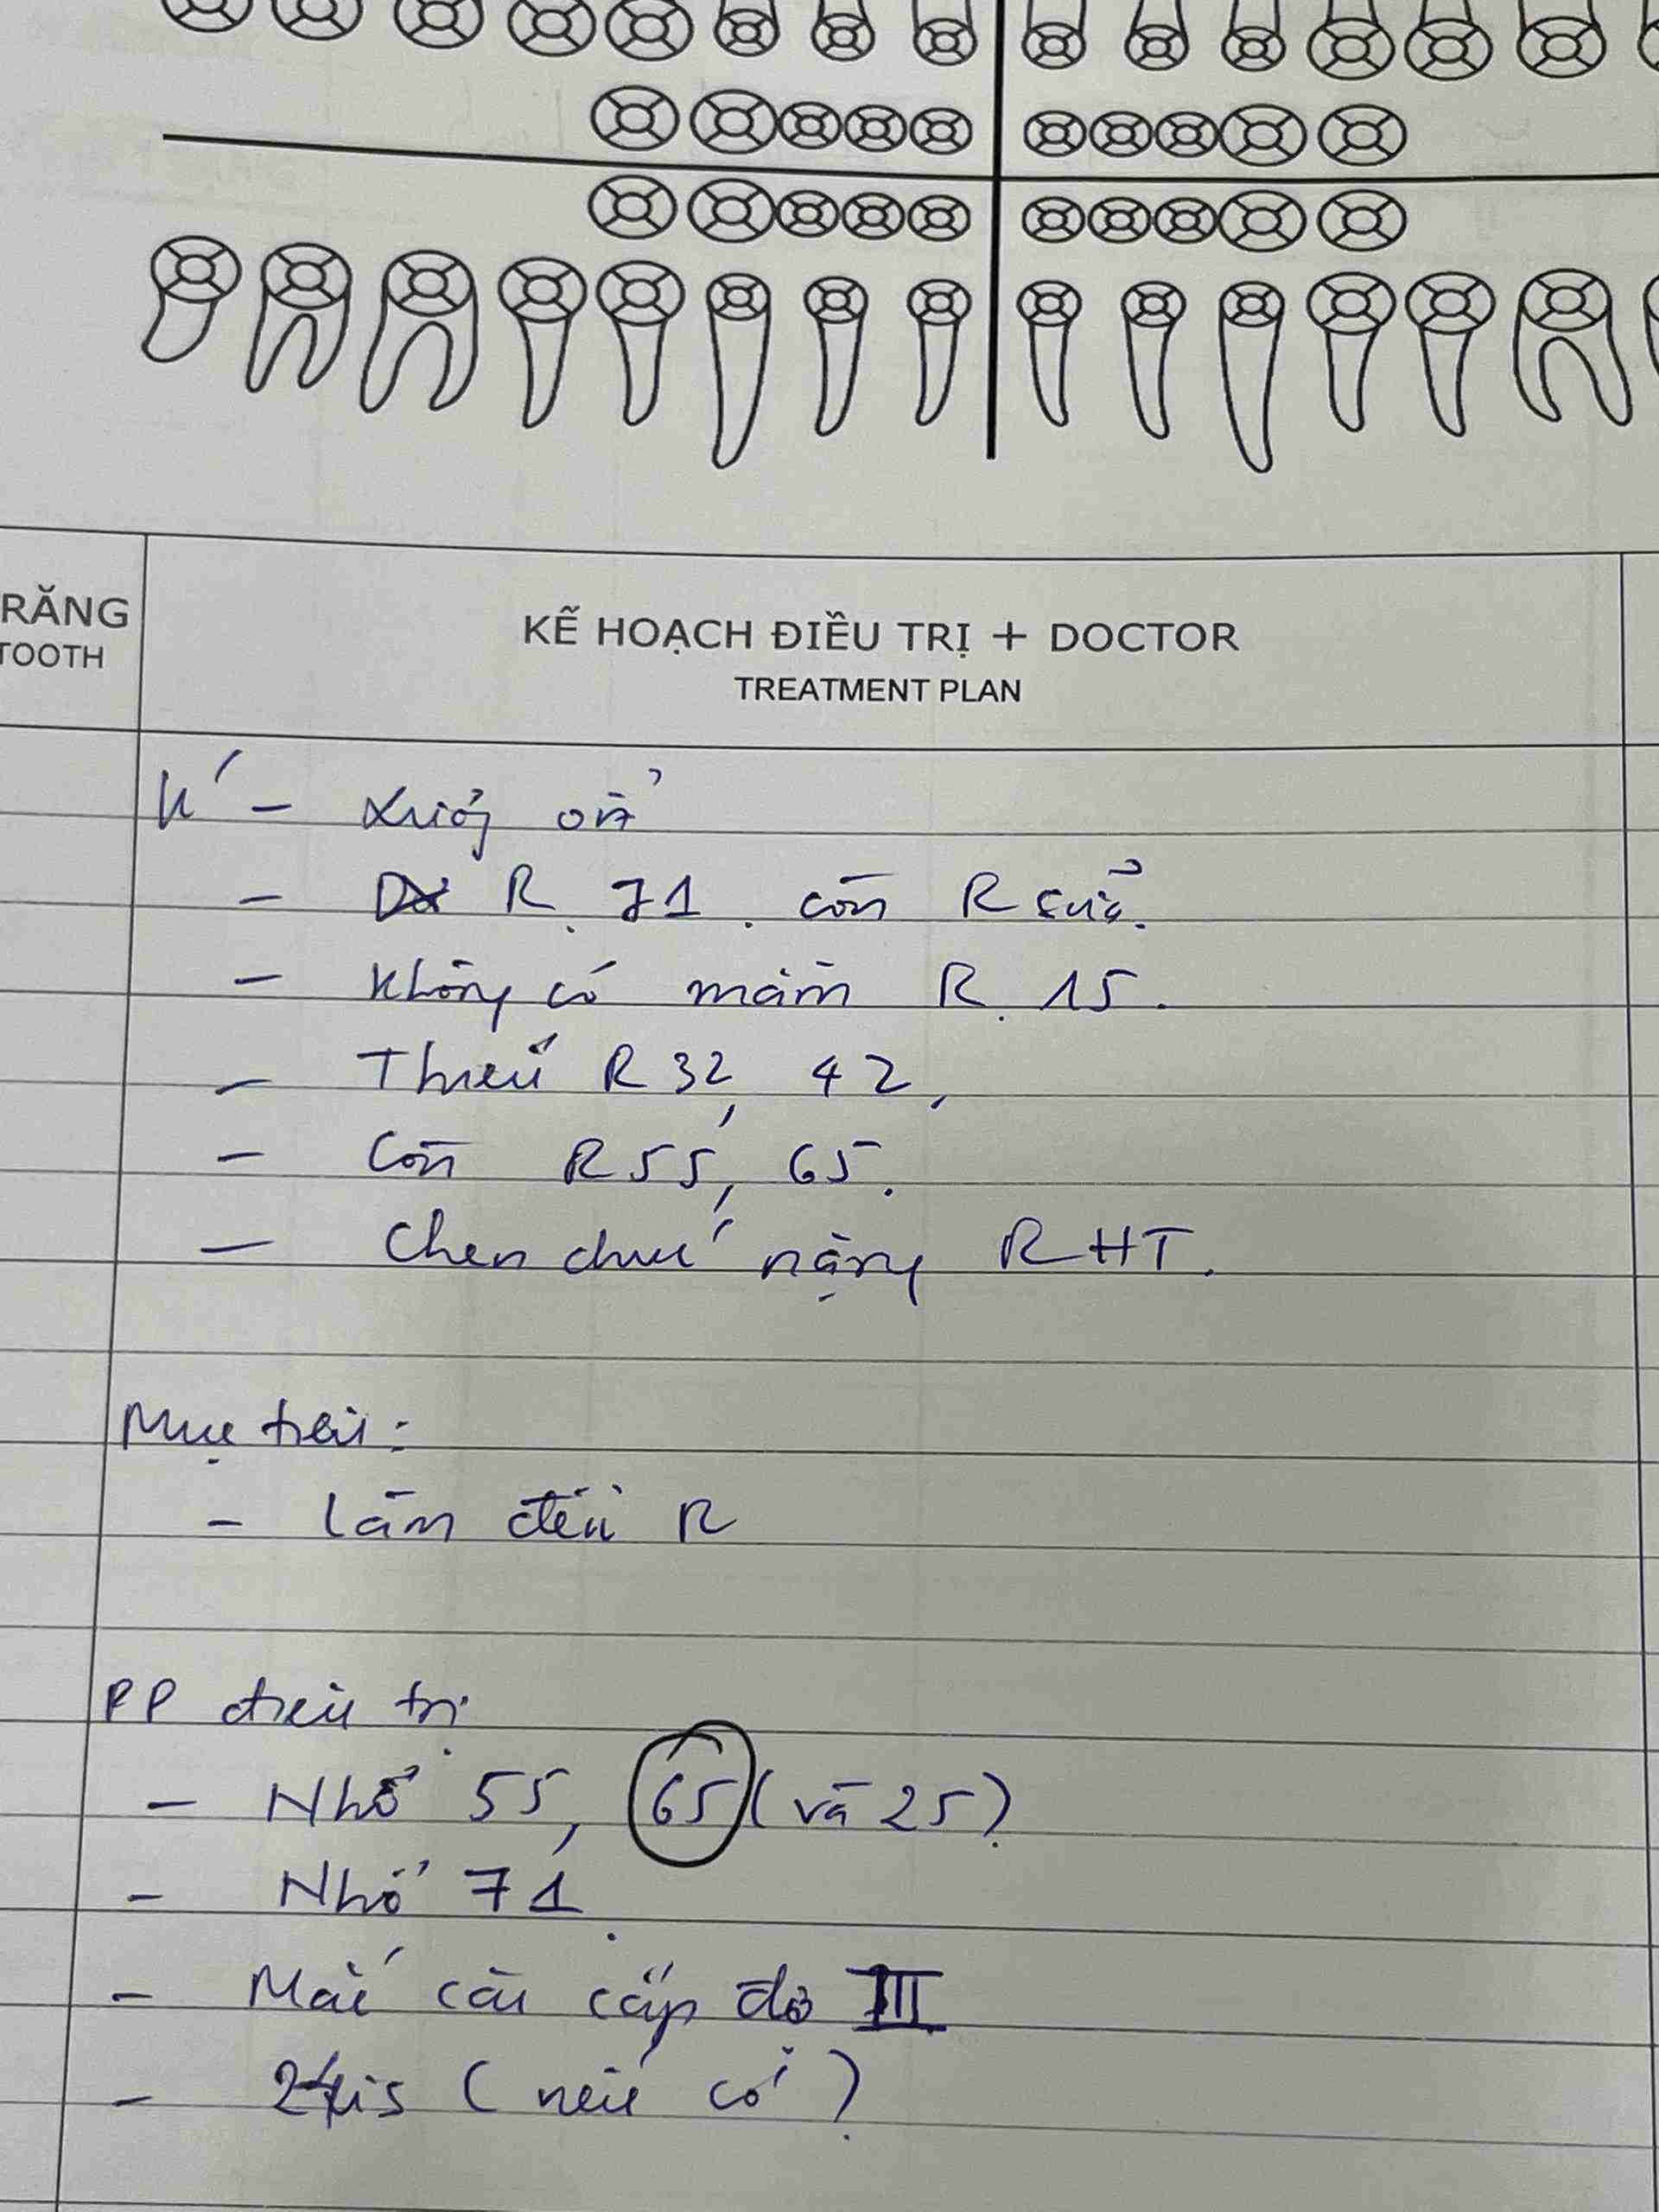 RĂNG
TOOTH
KẾ HOẠCH ĐIỀU TRỊ + DOCTOR
TREATMENT PLAN
- Xương ổn
- R. 71. còn R sữa.
- Không có mầm R. 15.
- Thiếu R32, 42,
- Còn R55, 65.
- Chen chúc nặng RHT.
Mục tiêu:
- Làm đều R
PP điều trị
- Nhổ 55, 65 (và 25)
- Nhổ 71.
- Mắc cài cấp độ III
- (nếu có).